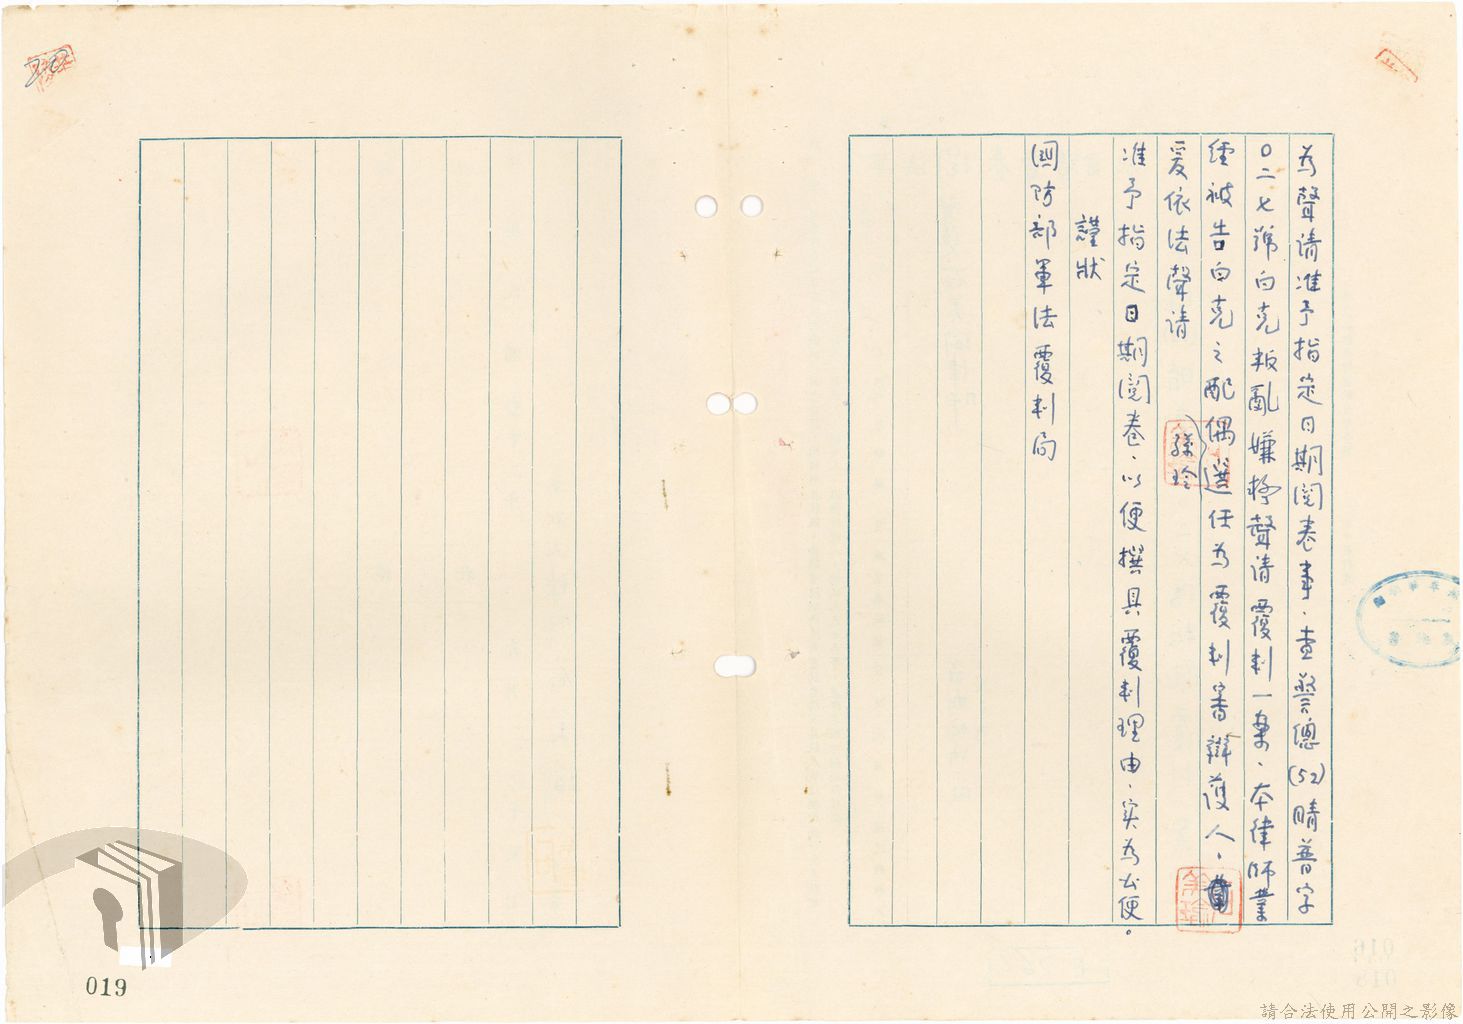 為聲请准予指定日期閱卷事、查警總(52)晴普字
〇二七號白克叛亂嫌疑聲请覆判一案、本律師業
經被告白克之配偶選任為覆判審辯護人。
孫玲
爰依法聲请
准予指定日期閱卷、以便撰具覆判理由、实為公便。
謹狀
國防部軍法覆判局
019
請合法使用公開之影像